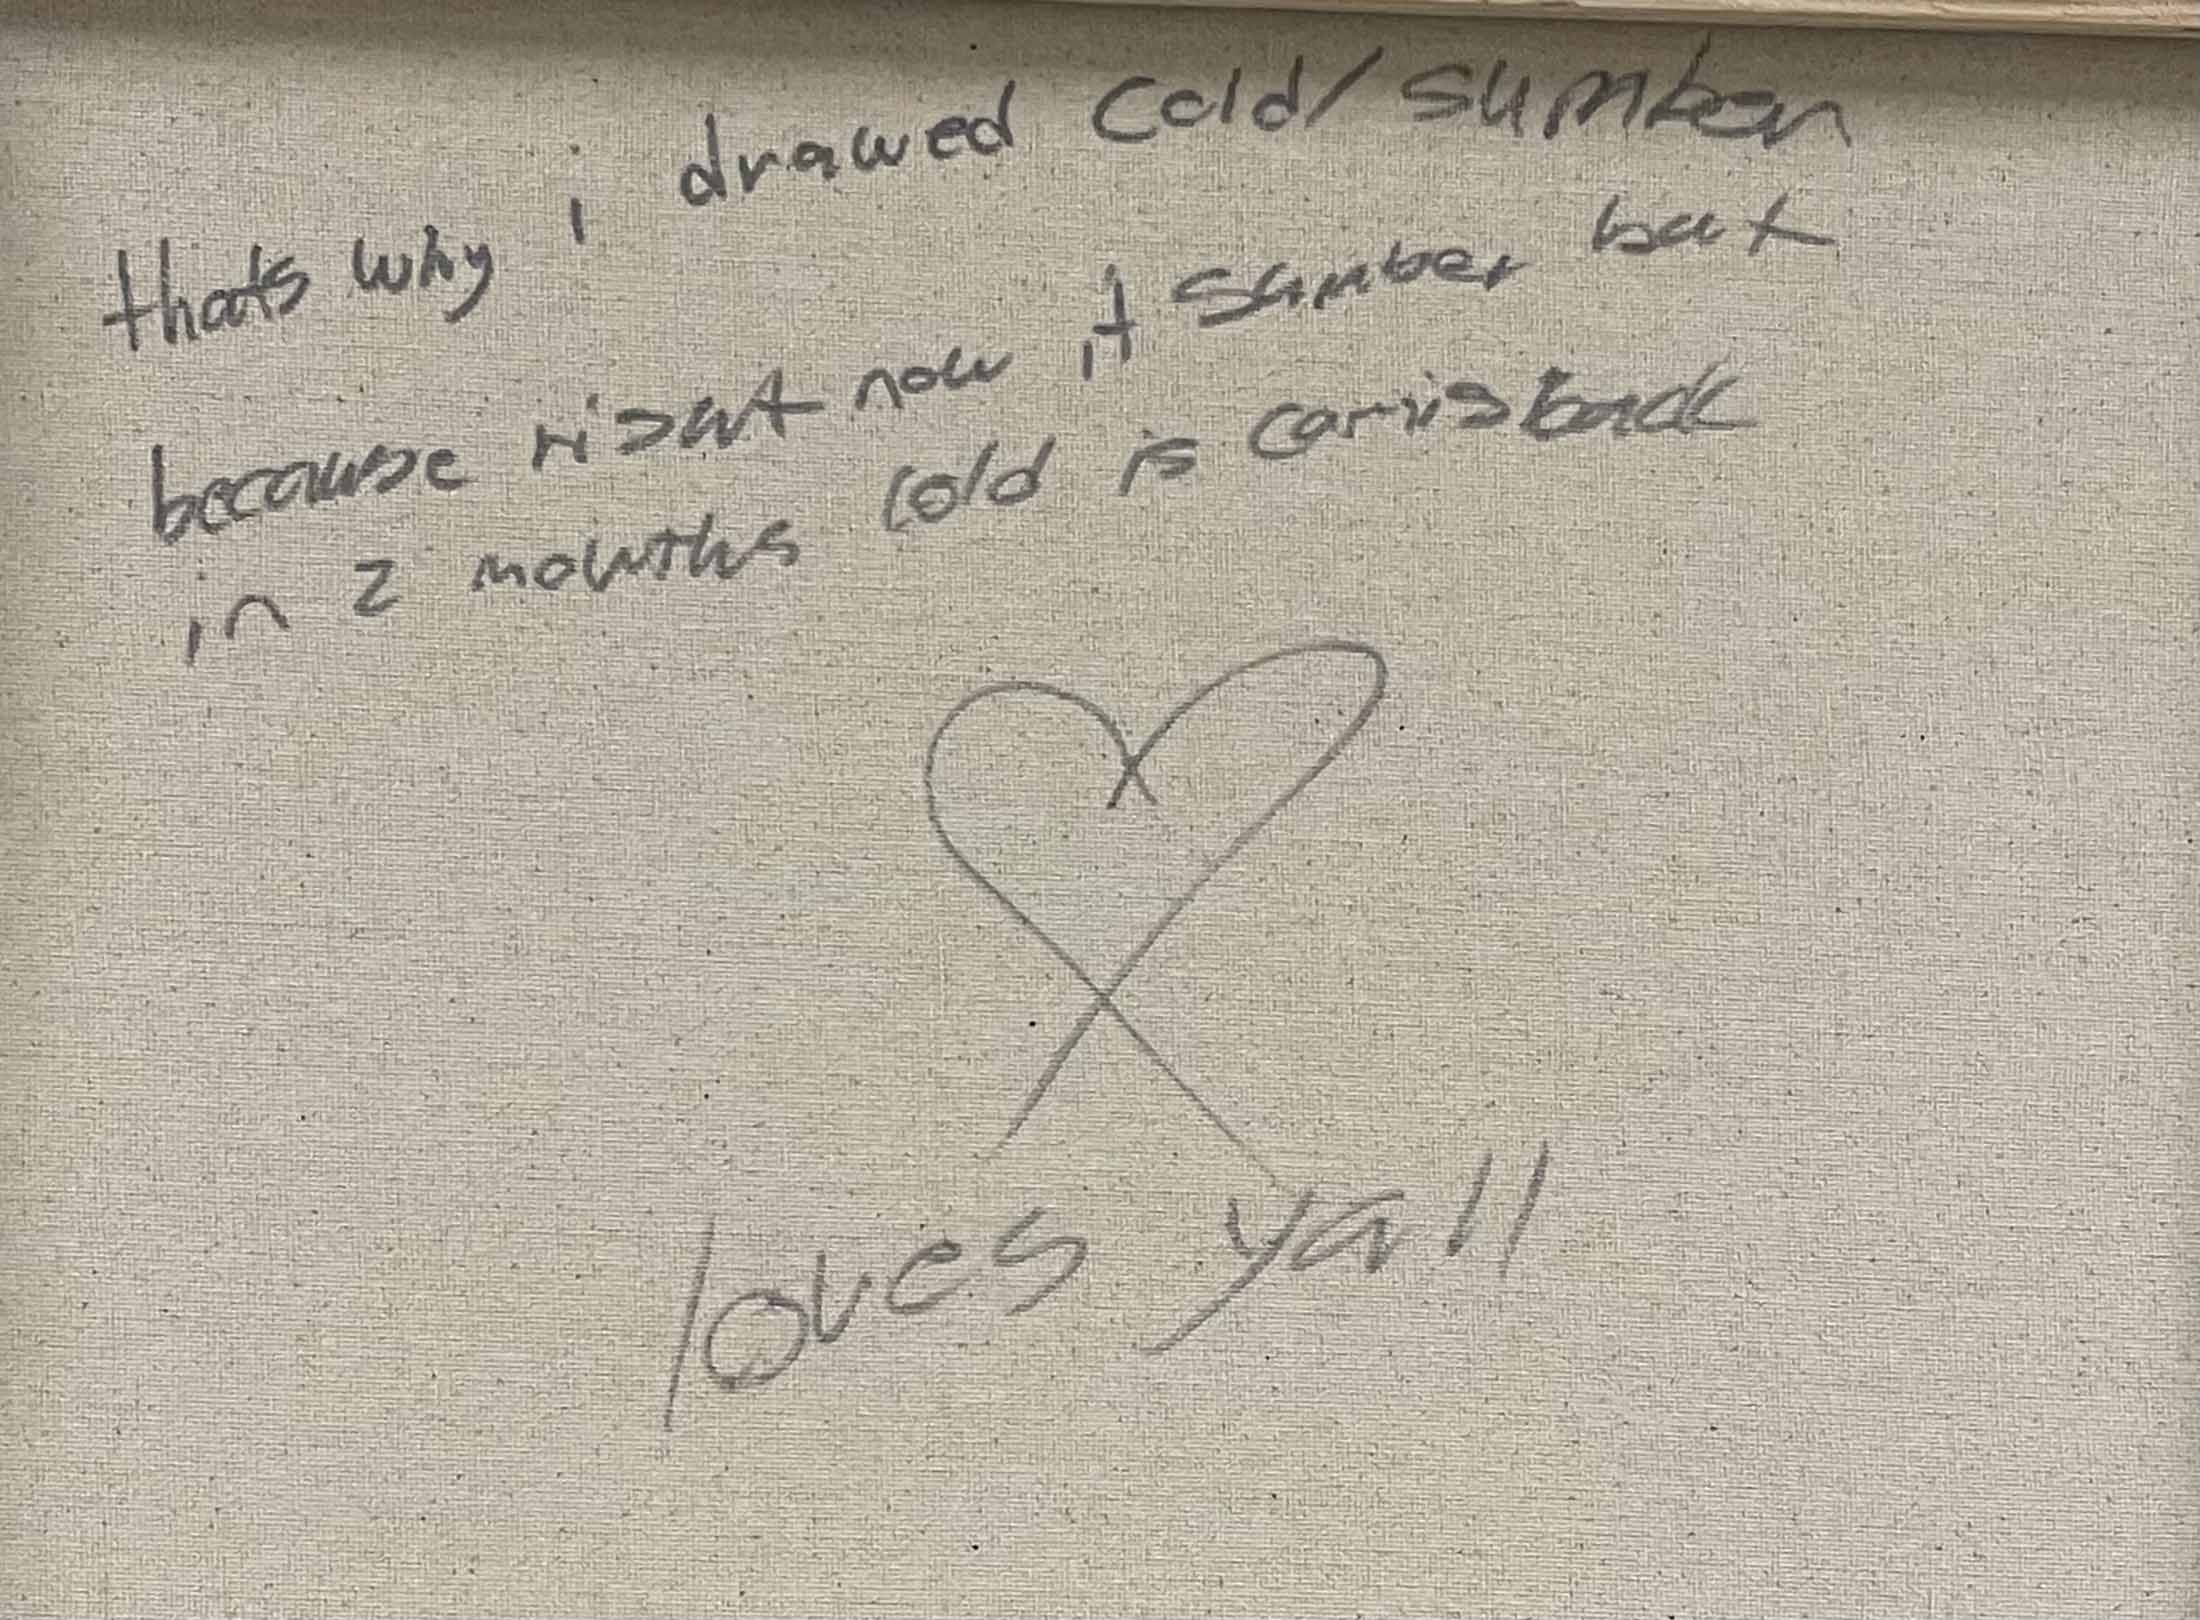 thats why i drawed cold/sumber
because right now it sumber but
in 2 mounths cold is coming back
loves yall